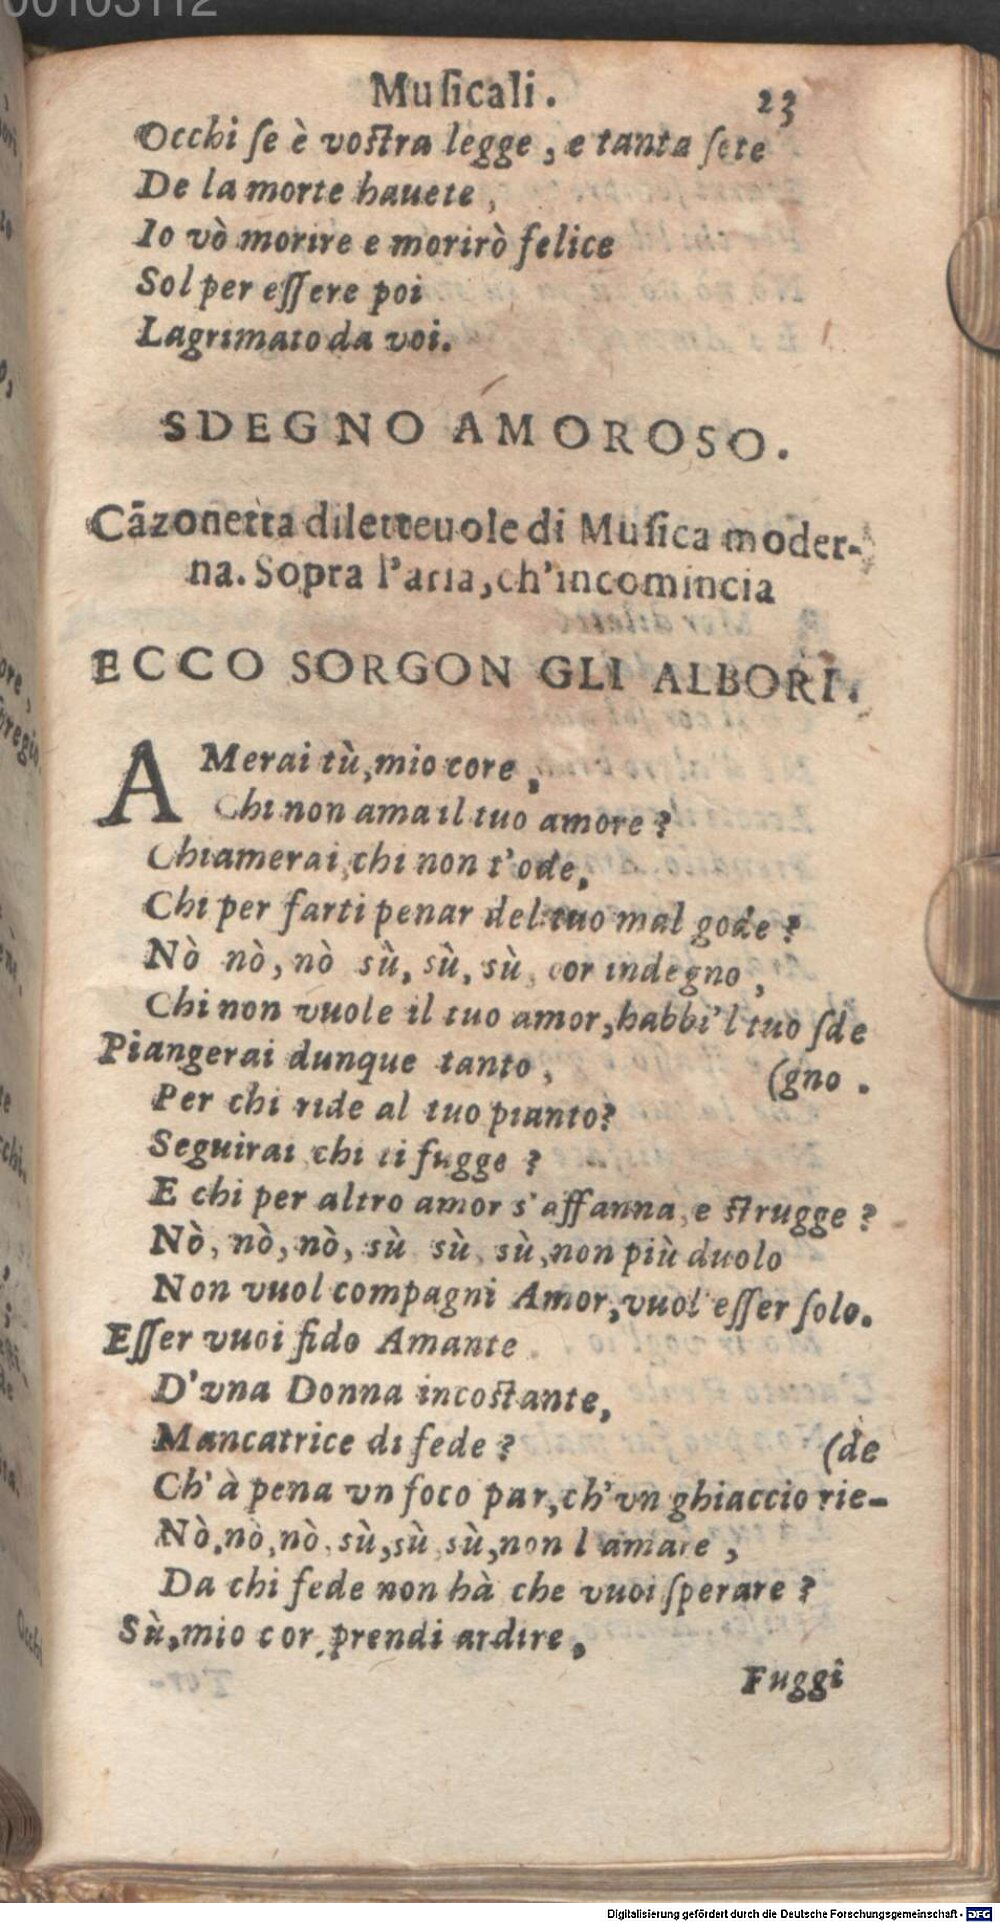 00103112
Muſicali. 23
Occhi ſe è voſtra legge, e tanta ſete
De la morte hauete,
Io vò morire e morirò felice
Sol per eſſere poi
Lagrimato da voi.
SDEGNO AMOROSO.
Cãzonetta diletteuole di Muſica moder-
na. Sopra l'aria, ch'incomincia
ECCO SORGON GLI ALBORI.
AMerai tù, mio core,
Chi non ama il tuo amore?
Chiamerai, chi non t'ode,
Chi per farti penar del tuo mal gode?
Nò nò, nò sù, sù, sù, cor indegno,
Chi non vuole il tuo amor, habbi'l tuo ſde
Piangerai dunque tanto, (gno.
Per chi ride al tuo pianto?
Seguirai chi ti fugge?
E chi per altro amor s'affanna, e ſtrugge?
Nò, nò, nò, sù sù, sù, non più duolo
Non vuol compagni Amor, vuol eſſer ſolo.
Eſſer vuoi fido Amante
D'vna Donna incoſtante,
Mancatrice di fede? (de
Ch'à pena vn foco par, ch'vn ghiaccio rie-
Nò, nò, nò, sù, sù, sù, non l'amare,
Da chi fede non hà che vuoi ſperare?
Sù, mio cor, prendi ardire,
Fuggi
Digitalisierung gefördert durch die Deutsche Forschungsgemeinschaft - DFG